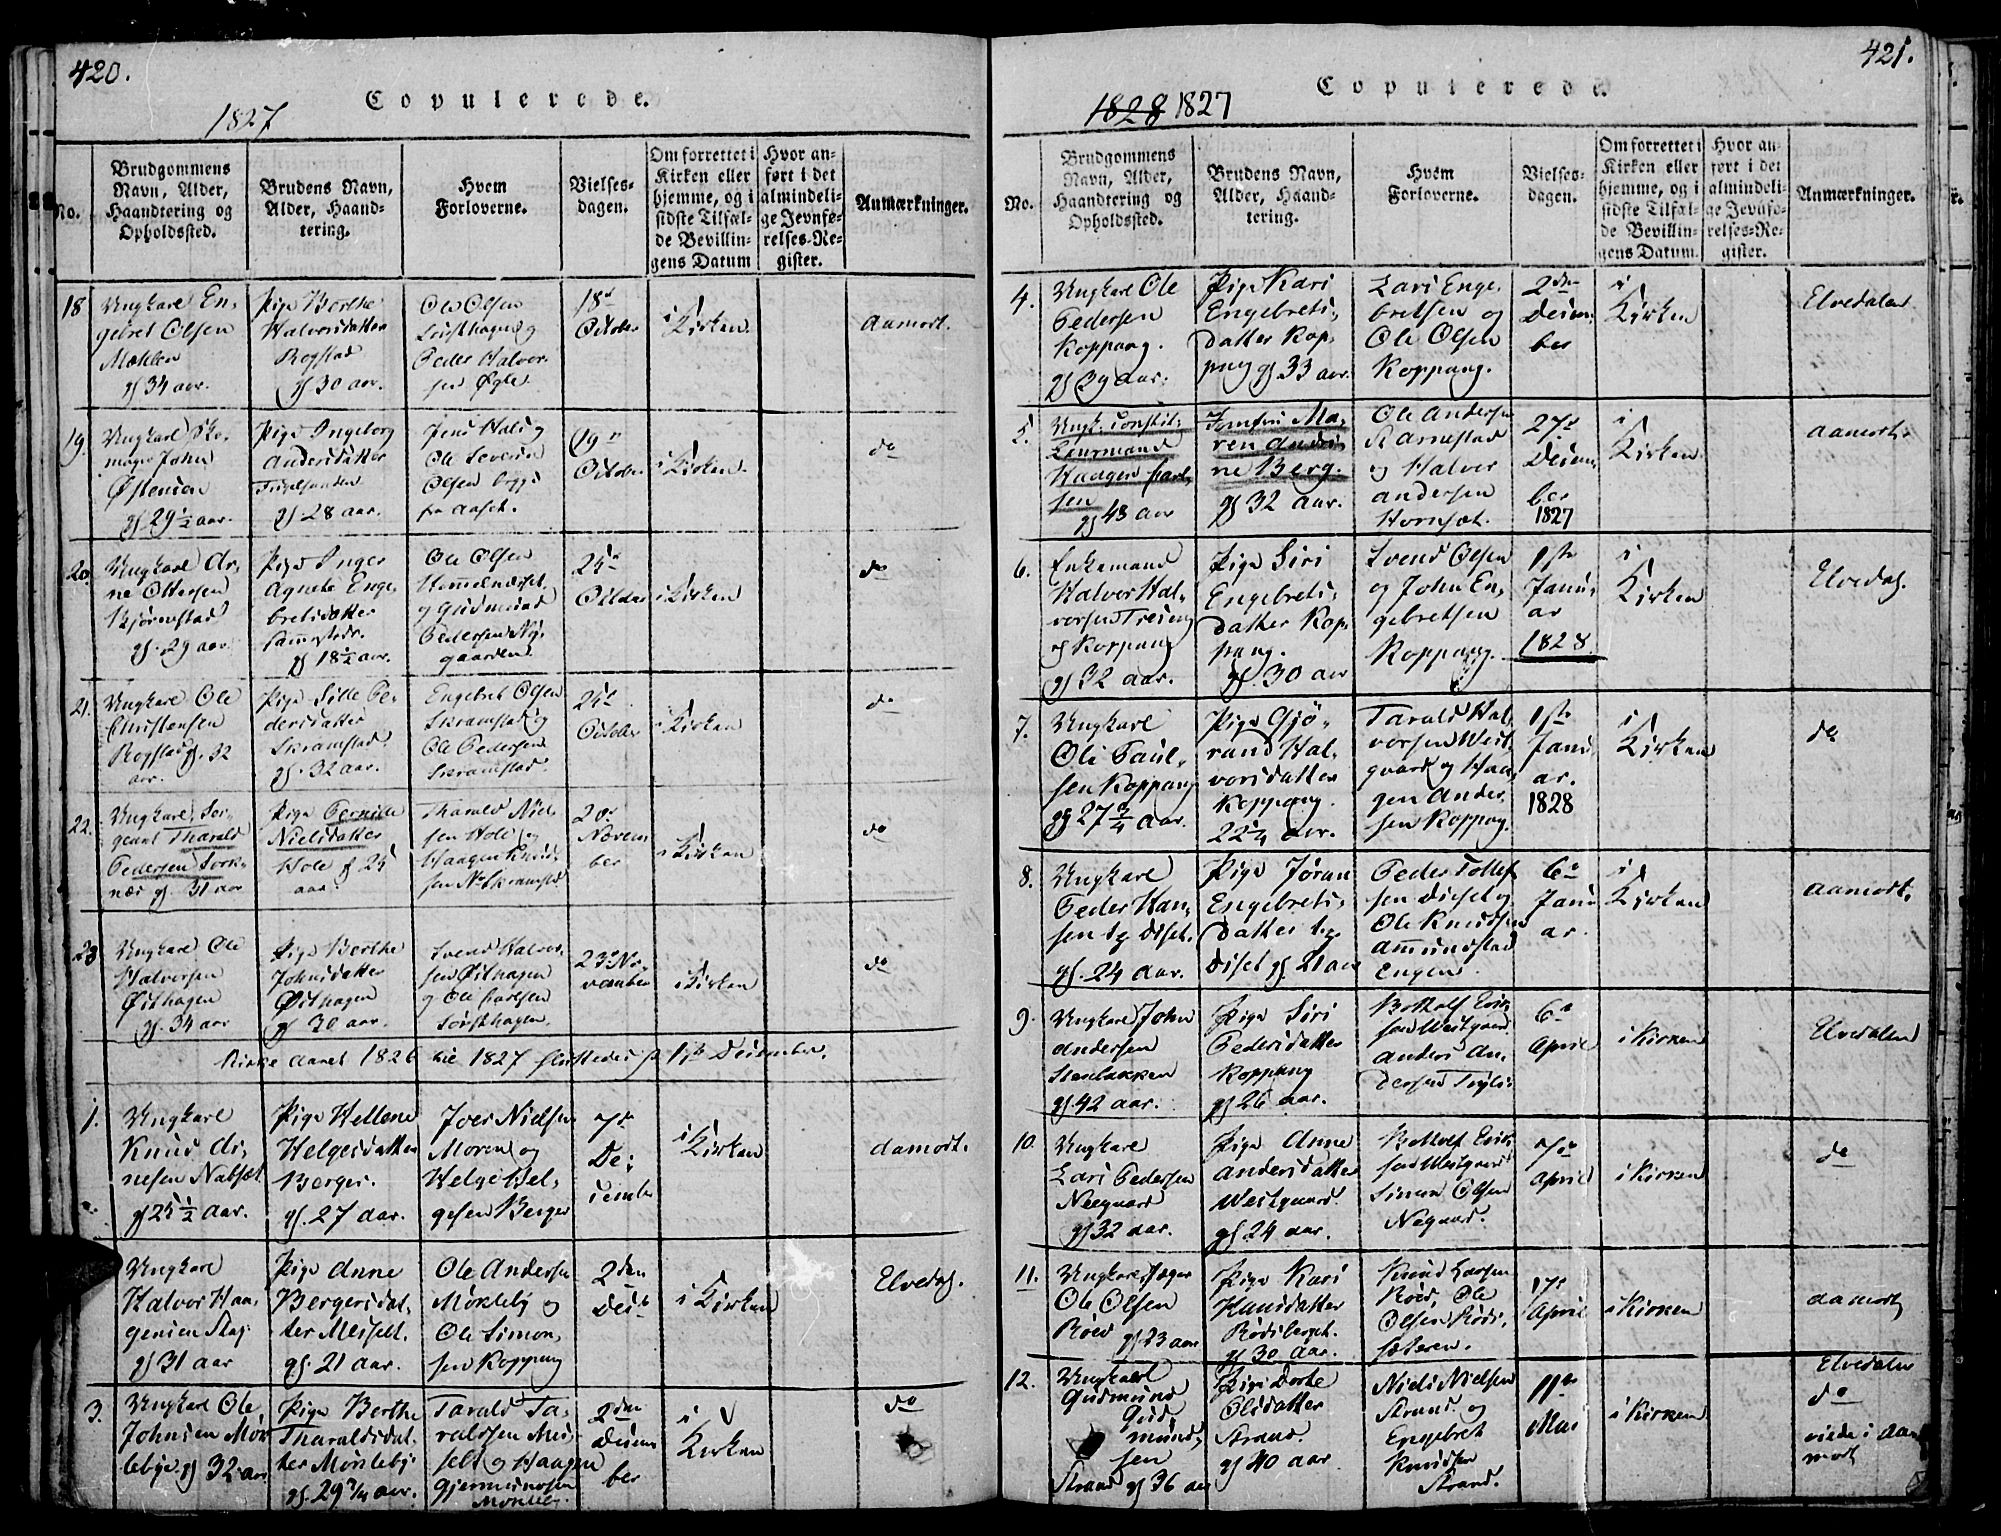 420.
Copulerede.
1827
No.
Brudgommens
Navn, Alder,
Haandtering og
Opholdssted.
Brudens Navn,
Alder, Haand-
tering.
Hvem
Forloverne.
Vielses-
dagen.
Om forrettet i
Kirken eller
hjemme, og i
sidste Tilfæl-
de Bevillin-
gens Datum
Hvor an-
ført i det
almindeli-
ge Jevnfø-
relses-Re-
gister.
Anmærkninger.
18
Ungkarl En-
gebret Olsen
gl 34 aar.
Pige Berthe
Halvorsdatter
Rogstad
gl 30 aar.
Ole Olsen
Peder Halvor-
sen Øgle
18de
October
i Kirken
Aamodt.
19.
Ungkarl
John
Østensen
gl 29½ aar.
Pige Ingeborg
Andersdatter
gl 28 aar.
Ole
Olsen
fra Aaset.
19de
October
i Kirken
do
20.
Ungkarl Ar-
ne Ottersen
gl. 29 aar
Pige Inger
Agnete Enge-
bretsdatter
gl 18½ aar.
Ole Olsen
og Gudmund
Pedersen Ny-
gaarden
25de
October
i Kirken
do
21.
Ungkarl Ole
Christensen
Rogstad gl. 32
aar.
Pige Sille Pe-
dersdatter
Skramstad
gl. 32 aar.
Engebret Olsen
Skramstad og
Ole Pedersen
Skramstad
25de
October
i Kirken
do
22.
Ungkarl Ser-
geant Tharald
Pedersen Sork-
næs gl. 31 aar
Pige Pernille
Nielsdatter
Hole gl 25
aar
Tharald Niel-
sen Hole og
Haagen Knud-
sen Skramstad
2de
Novem
ber
i Kirken
do
23
Ungkarl Ole
Halvorsen
Østhagen
gl. 34 aar
Pige Berthe
Johnsdatter
Østhagen
gl 30 aar.
Svend Halvor-
sen Østhagen
og Ole
23de No-
vember
i Kirken
do
Kirke Aaret 1826 til 1827 sluttedes 1ste December.
1.
Ungkarl
Knud Ar-
nesen
gl 25½ aar.
Pige Hellene
Helgesdatter
Berger.
gl. 27 aar.
Iver Nielsen
Moren og
Helge Hel-
gesen Berger
7de
De-
cember
i Kirken
Aamodt.
Ungkarl
Halvor Haa-
gensen
gl 31 aar
Pige Anne
Bergersdat-
ter Messelt.
gl. 21 aar.
Ole Andersen
Møklebÿ og
Ole Simon-
sen Koppang
2den
i Kirken
Elvedal.
3.
Ungkarl Ole
Johnsen Møk
lebye gl 32 aar
Pige Berthe
Tharaldsdat-
ter Møklebÿe
gl. 29 ¾ aar.
Tarald Ta-
raldsen Mes-
selt og Haagen
Gjermundsen
2den
Decem
ber
i
Kirken
do
421.
Copulerede.
1828 1827
No.
Brudgommens
Navn, Alder,
Haandtering og
Opholdssted.
Brudens Navn,
Alder, Haand-
tering.
Hvem
Forloverne.
Vielses-
dagen.
Om forrettet i
Kirken eller
hjemme, og i
sidste Tilfæl-
de Bevillin-
gens Datum.
Hvor an-
ført i det
almindeli-
ge Jevnfø-
relses-Re-
gister.
Anmærkninger.
4.
Ungkarl Ole
Pedersen
Koppang.
gl 39 aar.
Pige Kari
Engebrets-
datter Kop-
pang gl. 33 aar.
Lars Enge-
bretsen og
Ole Olsen
Koppang.
2den
Decem-
ber
i
Kirken
Elvedalen
5.
Ungk. Constit.
Lensmand
Haagen Carl-
sen
gl 43 aar
Jomfru Ma-
ren Andri-
ne Berg.
gl 32 aar.
Ole Andersen
og Halvor
Andersen
Hornset.
27de
Decem-
ber
1827
i
Kirken
Aamodt.
6.
Enkemand
Halvor Hal-
vorsen
Koppang
gl 32 aar.
Pige Siri
Engebrets-
datter Kop-
pang.
gl. 30 aar
Svend Olsen
og John En-
gebretsen
Koppang.
1ste
Janu-
ar
1828.
i
Kirken
Elvedal.
7.
Ungkarl
Ole Paul-
sen Koppang
gl 27 ¾ aar.
Pige Gjø-
rand Hal-
vorsdatter
Koppang.
22 ¼ aar.
Tarald Hal-
vorsen West-
gaard og Haa-
gen Ander-
sen Koppang.
1ste
Janu-
ar.
1828
i
Kirken
do
8.
Ungkarl
Peder Han-
sen
gl. 24 aar.
Pige Jøran
Engebrets-
datter
Diset gl 21 aar
Peder Tollef
sen Diset og
Ole Knudsen
Amundstad
Engen
6te
Janu
ar.
i
Kirken
Aamodt.
9.
Ungkarl John
Andersen
gl 42 aar.
Pige Siri
Pedersdatter
Koppang
gl 26 aar.
Bottolf Erik-
sen Westgaard
Anders An-
dersen
6te
April
i Kirken
Elvedalen
10.
Ungkarl
Lars Pedersen
Neegaard
gl 32 aar.
Pige Anne
Andersdatter
Westgaard.
gl 24 aar.
Bottolf Erik-
sen Westgaard
Simen Olsen
Negaard.
7de
April
i Kirken
do
11.
Ungkarl
Ole Olsen
gl 23 aar
Pige Kari
Hansdatter
gl 30 aar.
Knud Larsen
Ole
Olsen
17de
April
i Kirken
Aamodt
12.
Ungkarl
Gudmund
Gud
mund-
sen
Strand gl 36 aar
Pige Dorte
Olsdatter
Strand.
gl 40 aar
Niels Nielsen
Strand og
Engebret
Knudsen
Strand.
11te
Mai
i Kirken
Elvedalen
do
viede i Aa
modt